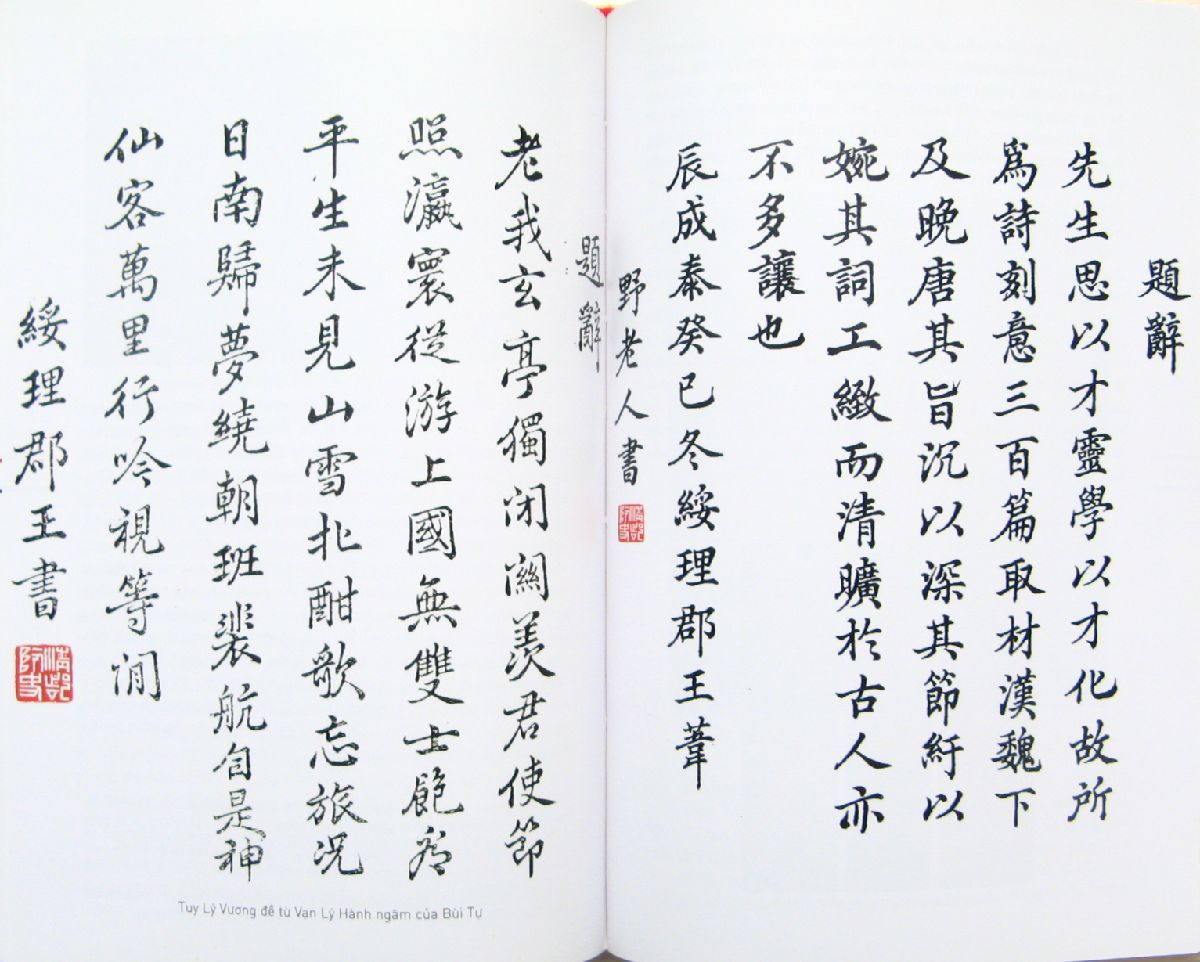 題辭
先生思以才靈學以才化故所
爲詩刻意三百篇取材漢魏下
及晚唐其旨沉以深其節紆以
婉其詞工緻而清曠於古人亦
不多讓也
辰成泰癸巳冬綏理郡王葦
野老人書
題辭
老我玄亭獨閉關羨君使節
照瀛寰從游上國無雙士飽看
平生未見山雪北酣歌忘旅况
日南歸夢繞朝班裴航自是神
仙客萬里行吟視等閒
綏理郡王書
Tuy Lý Vương đề từ Vạn Lý Hành ngâm của Bùi Tự